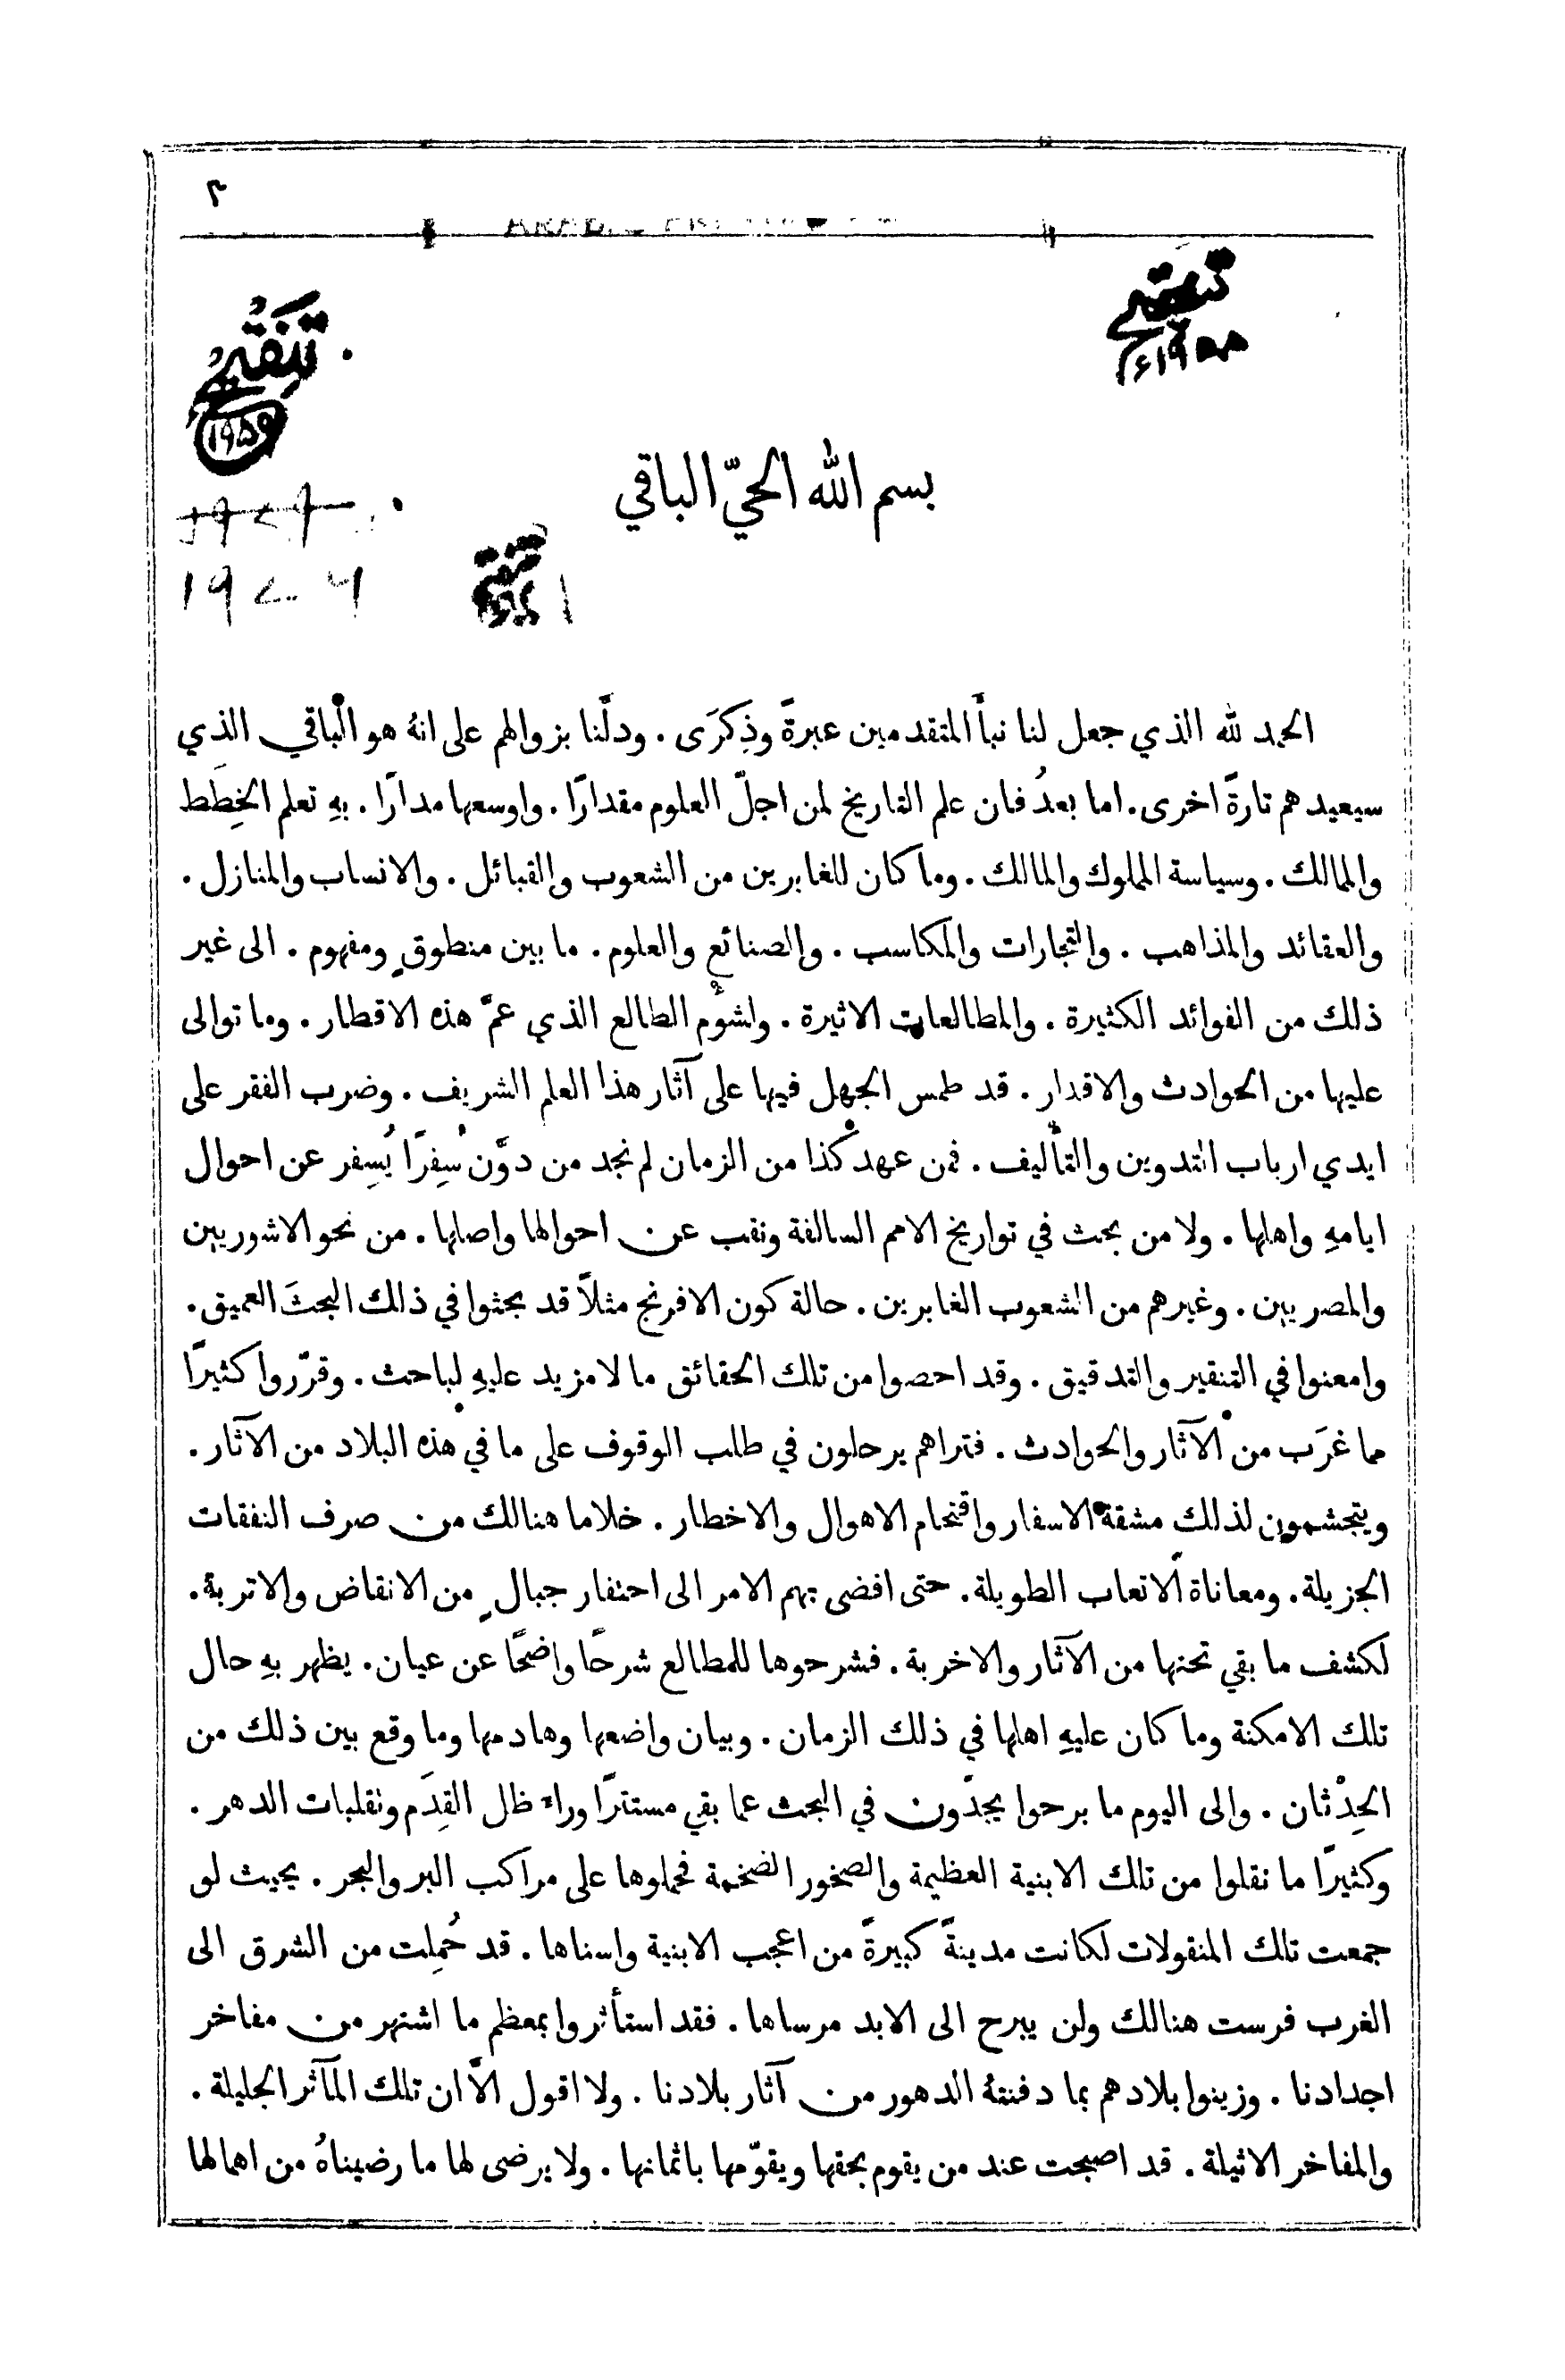 ٣
تنقيح
١٩٥٥ء
تنقيح
١٩٥٩
١٩٧٦
بسم الله الحيّ الباقي
الحمد لله الذي جعل لنا نبأ المتقدمين عبرةً وذِكرَى . ودلّنا بزوالهم على انهُ هو الباقي الذي
سيعيدهم تارةً اخرى . اما بعدُ فان علم التاريخ لمن اجلّ العلوم مقدارًا . واوسعها مدارًا . بهِ تعلم الخِطَط
والمالك . وسياسة الملوك والمالك . وما كان للغابرين من الشعوب والقبائل . والانساب والمنازل .
والعقائد والمذاهب . والتجارات والمكاسب . والصنائع والعلوم . ما بين منطوقٍ ومفهوم . الى غير
ذلك من الفوائد الكثيرة . والمطالعات الاثيرة . ولشؤم الطالع الذي عمَّ هذه الاقطار . وما توالى
عليها من الحوادث والاقدار . قد طمس الجهل فيها على آثار هذا العلم الشريف . وضرب الفقر على
ايدي ارباب التدوين والتأليف . فمن عهد كذا من الزمان لم نجد من دوَّن سِفرًا يُسفِر عن احوال
ايامهِ واهلها . ولا من بحث في تواريخ الامم السالفة ونقب عن احوالها واصلها . من نحو الاشوريين
والمصريين . وغيرهم من الشعوب الغابرين . حالة كون الافرنج مثلاً قد بحثوا في ذلك البحث العميق .
وامعنوا في التنقير والتدقيق . وقد احصوا من تلك الحقائق ما لا مزيد عليهِ لباحث . وقرّروا كثيرًا
مما غرَب من الآثار والحوادث . فتراهم يرحلون في طلب الوقوف على ما في هذه البلاد من الآثار .
ويتجشمون لذلك مشقة الاسفار واقتحام الاهوال والاخطار . خلا ما هنالك من صرف النفقات
الجزيلة . ومعاناة الاتعاب الطويلة . حتى افضى بهم الامر الى احتفار جبالٍ من الانقاض والاتربة .
لكشف ما بقي تحتها من الآثار والاخربة . فشرحوها للمطالع شرحًا واضحًا عن عيان . يظهر بهِ حال
تلك الامكنة وما كان عليهِ اهلها في ذلك الزمان . وبيان واضعها وهادمها وما وقع بين ذلك من
الحِدْثان . والى اليوم ما برحوا يجدّون في البحث عما بقي مستترًا وراء ظل القِدَم وتقلبات الدهر .
وكثيرًا ما نقلوا من تلك الابنية العظيمة والصخور الضخمة فحملوها على مراكب البر والبحر . بحيث لو
جمعت تلك المنقولات لكانت مدينةً كبيرةً من اعجب الابنية واسناها . قد حُمِلت من الشرق الى
الغرب فرست هنالك ولن يبرح الى الابد مرساها . فقد استأثروا بمعظم ما اشتهر من مفاخر
اجدادنا . وزينوا بلادهم بما دفنتهُ الدهور من آثار بلادنا . ولا اقول الّا ان تلك المآثر الجليلة .
والمفاخر الاثيلة . قد اصبحت عند من يقوم بحقها ويقوّمها باثمانها . ولا يرضى لها ما رضيناهُ من اهمالها